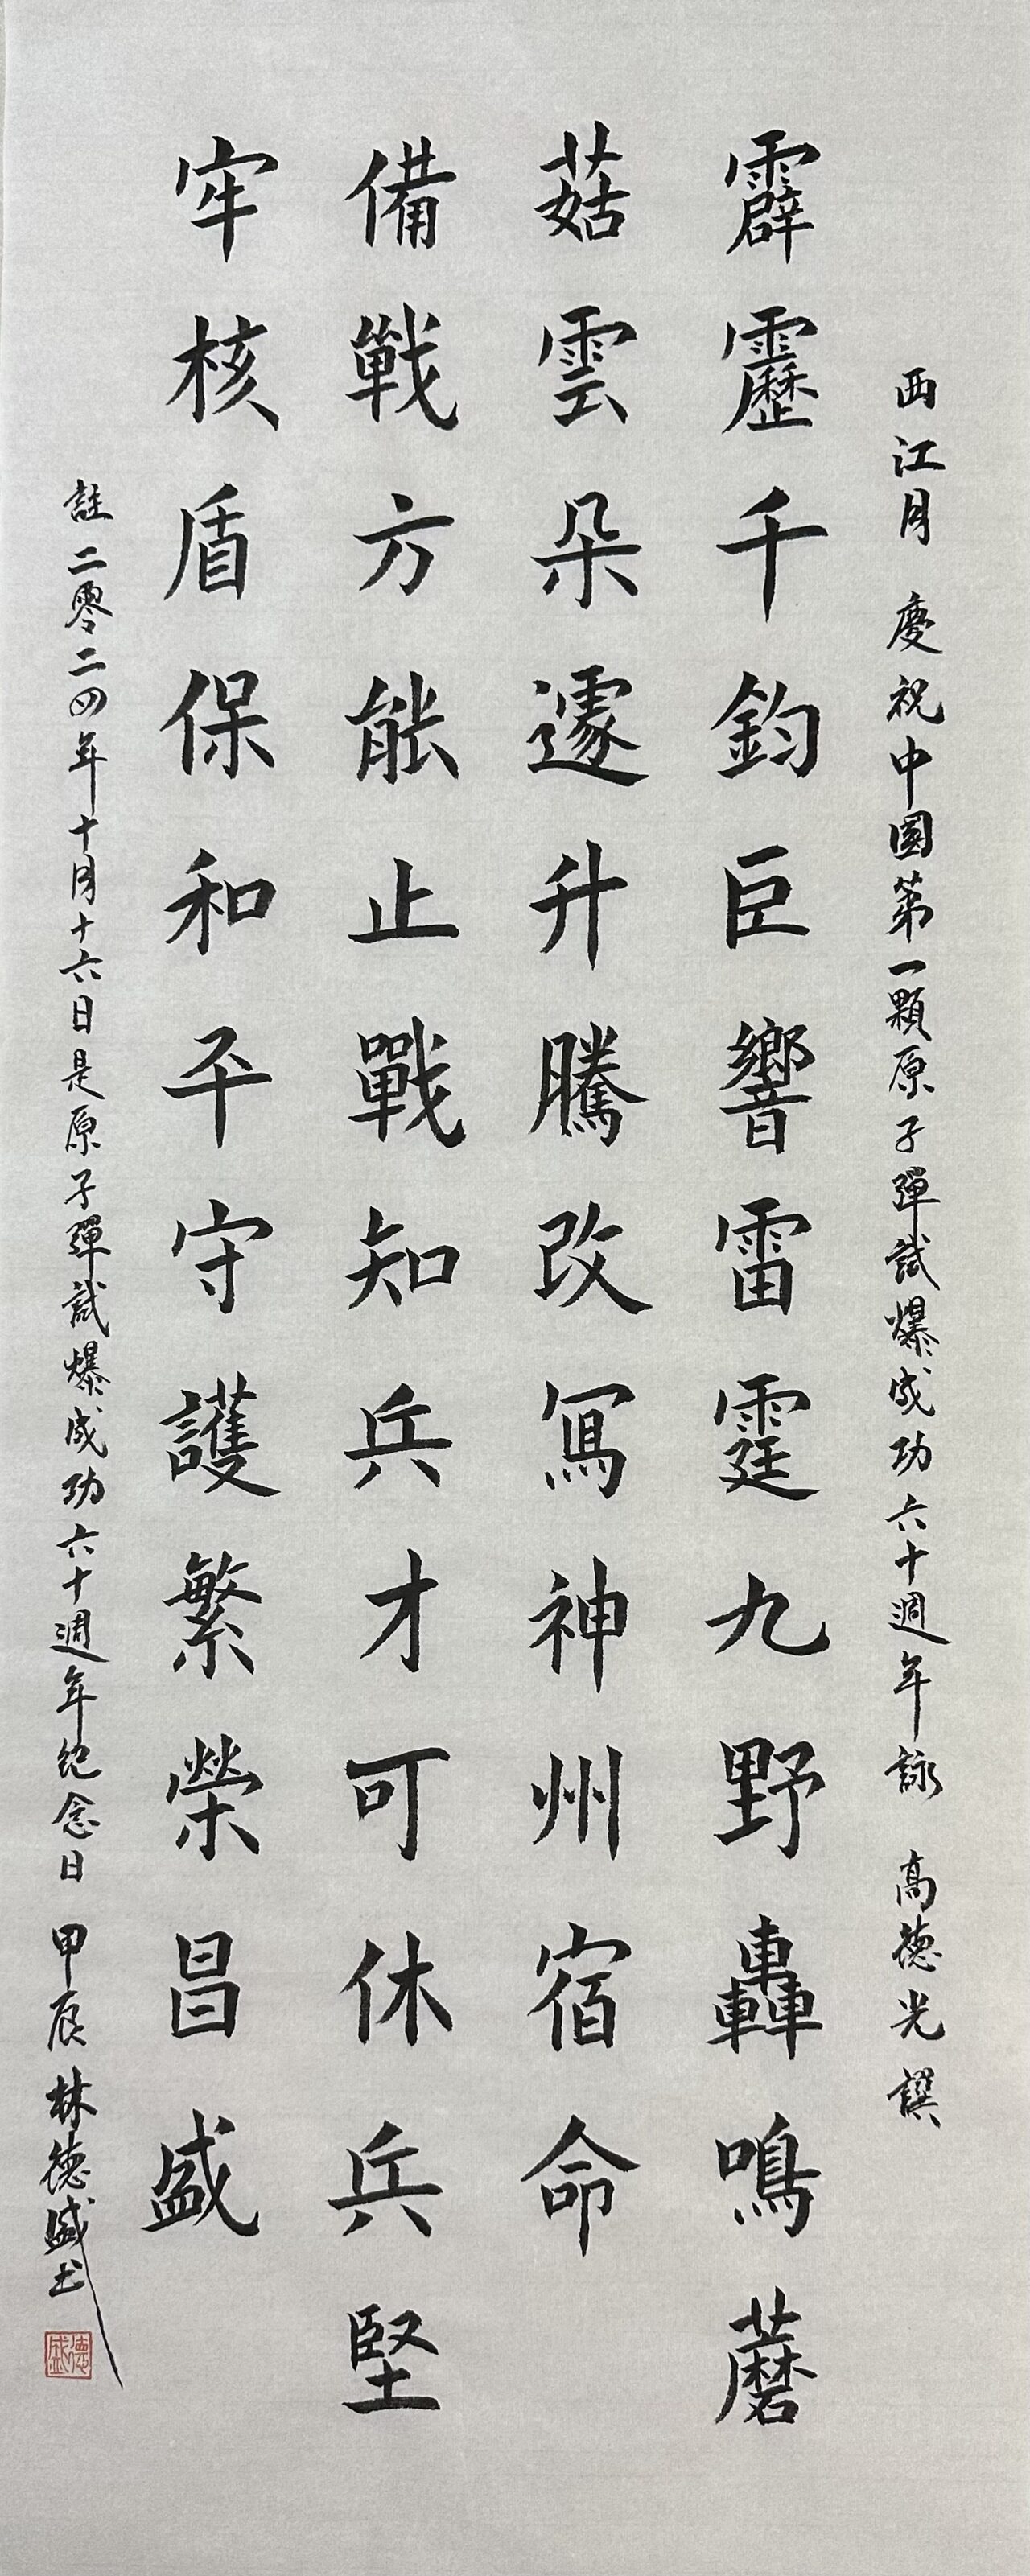 西江月 慶祝中國第一顆原子彈試爆成功六十週年詠 高德光譔
霹靂千鈞巨響雷霆九野轟鳴蘑
菇雲朵遽升騰改寫神州宿命
備戰方能止戰知兵才可休兵堅
牢核盾保和平守護繁榮昌盛
註二零二四年十月十六日是原子彈試爆成功六十週年紀念日 甲辰林德盛书
德盛